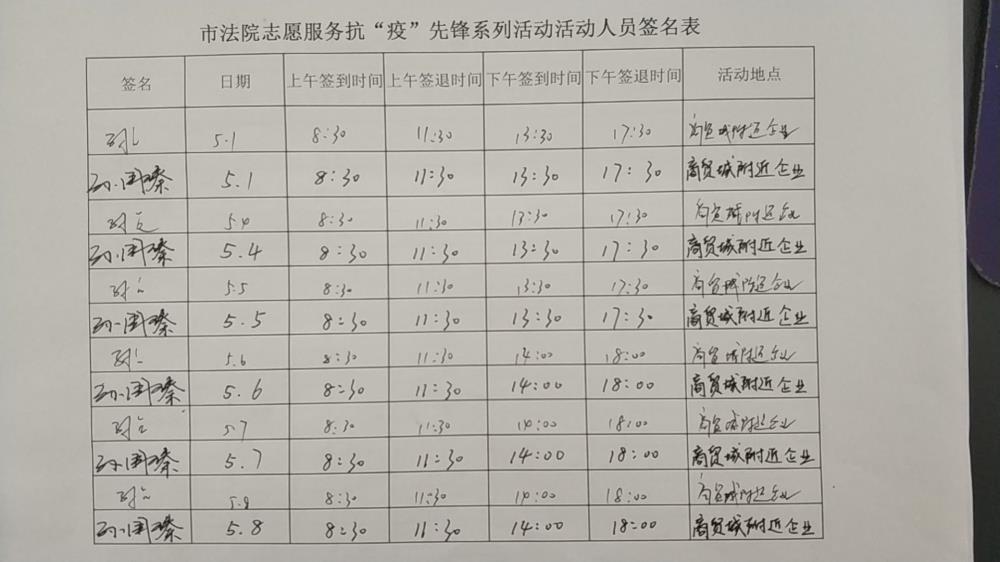 市法院志愿服务抗“疫”先锋系列活动活动人员签名表
签名 日期 上午签到时间 上午签退时间 下午签到时间 下午签退时间 活动地点
5.1 8:30 11:30 13:30 17:30 商贸城附近企业
孙国臻 5.1 8:30 11:30 13:30 17:30 商贸城附近企业
5.4 8:30 11:30 13:30 17:30 商贸城附近企业
孙国臻 5.4 8:30 11:30 13:30 17:30 商贸城附近企业
5.5 8:30 11:30 13:30 17:30 商贸城附近企业
孙国臻 5.5 8:30 11:30 13:30 17:30 商贸城附近企业
5.6 8:30 11:30 14:00 18:00 商贸城附近企业
孙国臻 5.6 8:30 11:30 14:00 18:00 商贸城附近企业
5.7 8:30 11:30 14:00 18:00 商贸城附近企业
孙国臻 5.7 8:30 11:30 14:00 18:00 商贸城附近企业
5.8 8:30 11:30 14:00 18:00 商贸城附近企业
孙国臻 5.8 8:30 11:30 14:00 18:00 商贸城附近企业